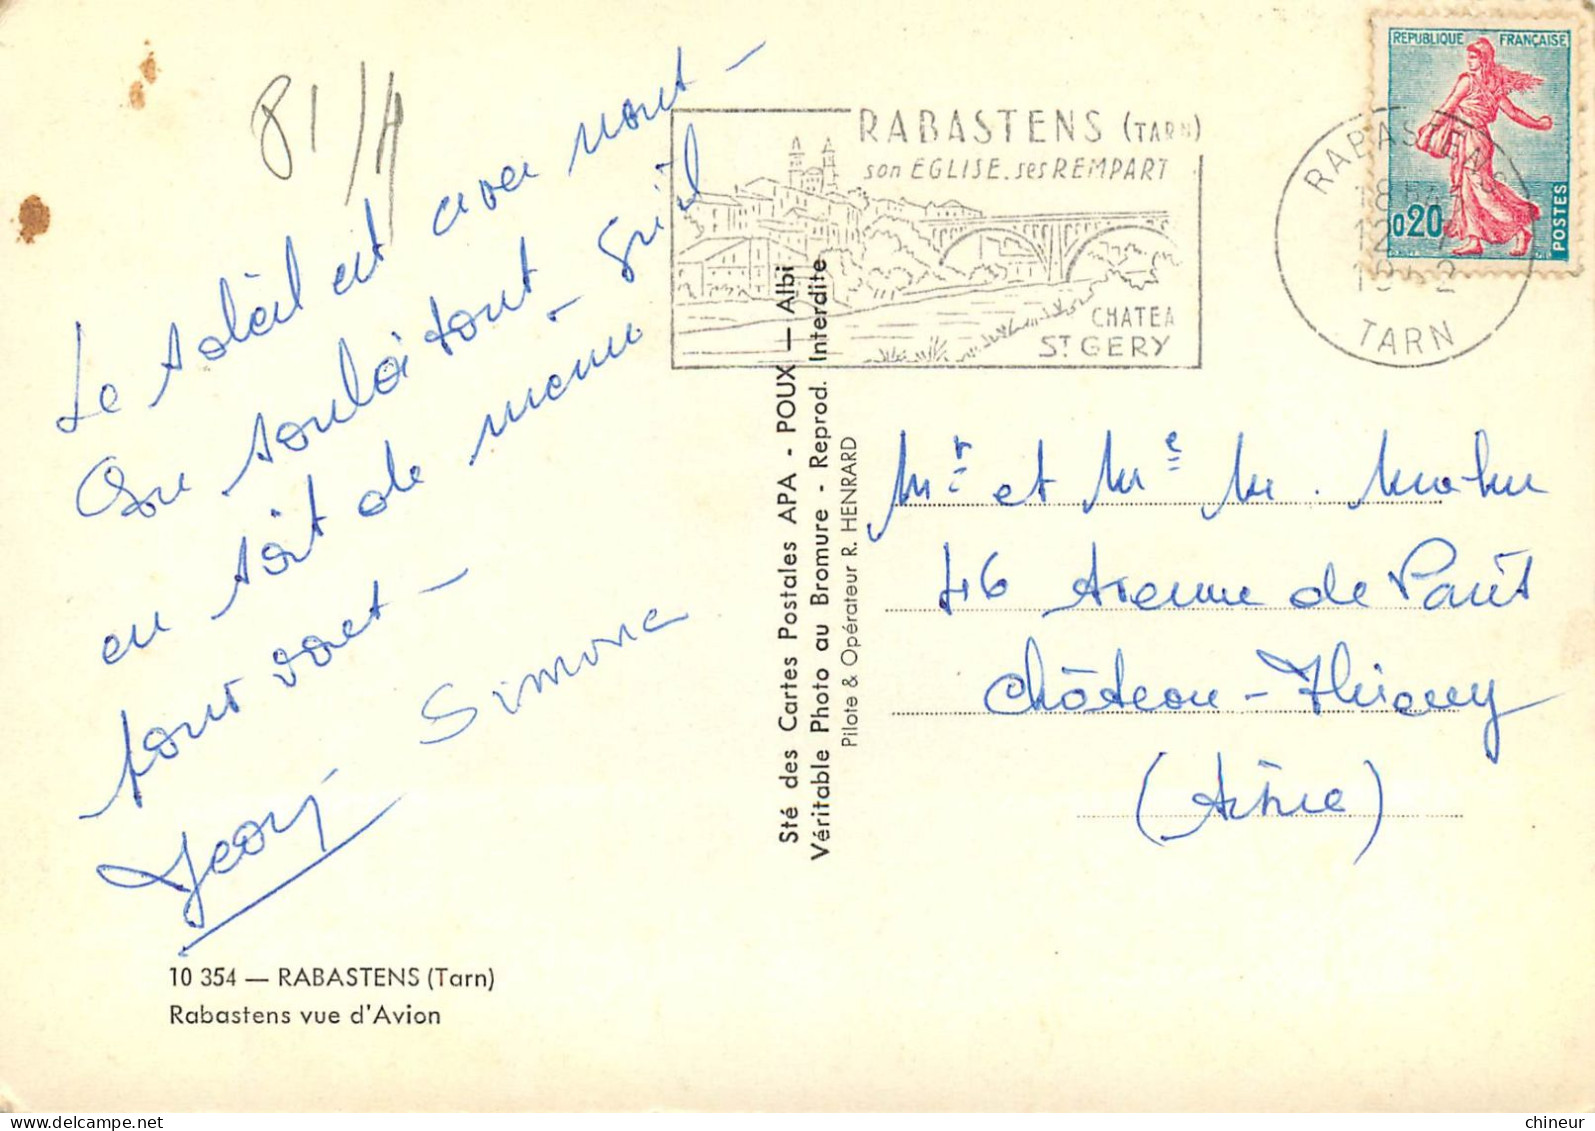 81/4
Le soleil est avec nous –
On souhaitons qu'il
en soit de même
pour vous –
Simone
10 354 — RABASTENS (Tarn)
Rabastens vue d'Avion
Sté des Cartes Postales APA - POUX — Albi
Véritable Photo au Bromure - Reprod. Interdite
Pilote & Opérateur R. HENRARD
RABASTENS (TARN)
son EGLISE. ses REMPART
CHATEA
ST GERY
REPUBLIQUE FRANÇAISE
0,20
POSTES
RABASTENS
TARN
Mr et Me M.
46 Avenue de Paris
Château-Thierry
(Aisne)
chineur